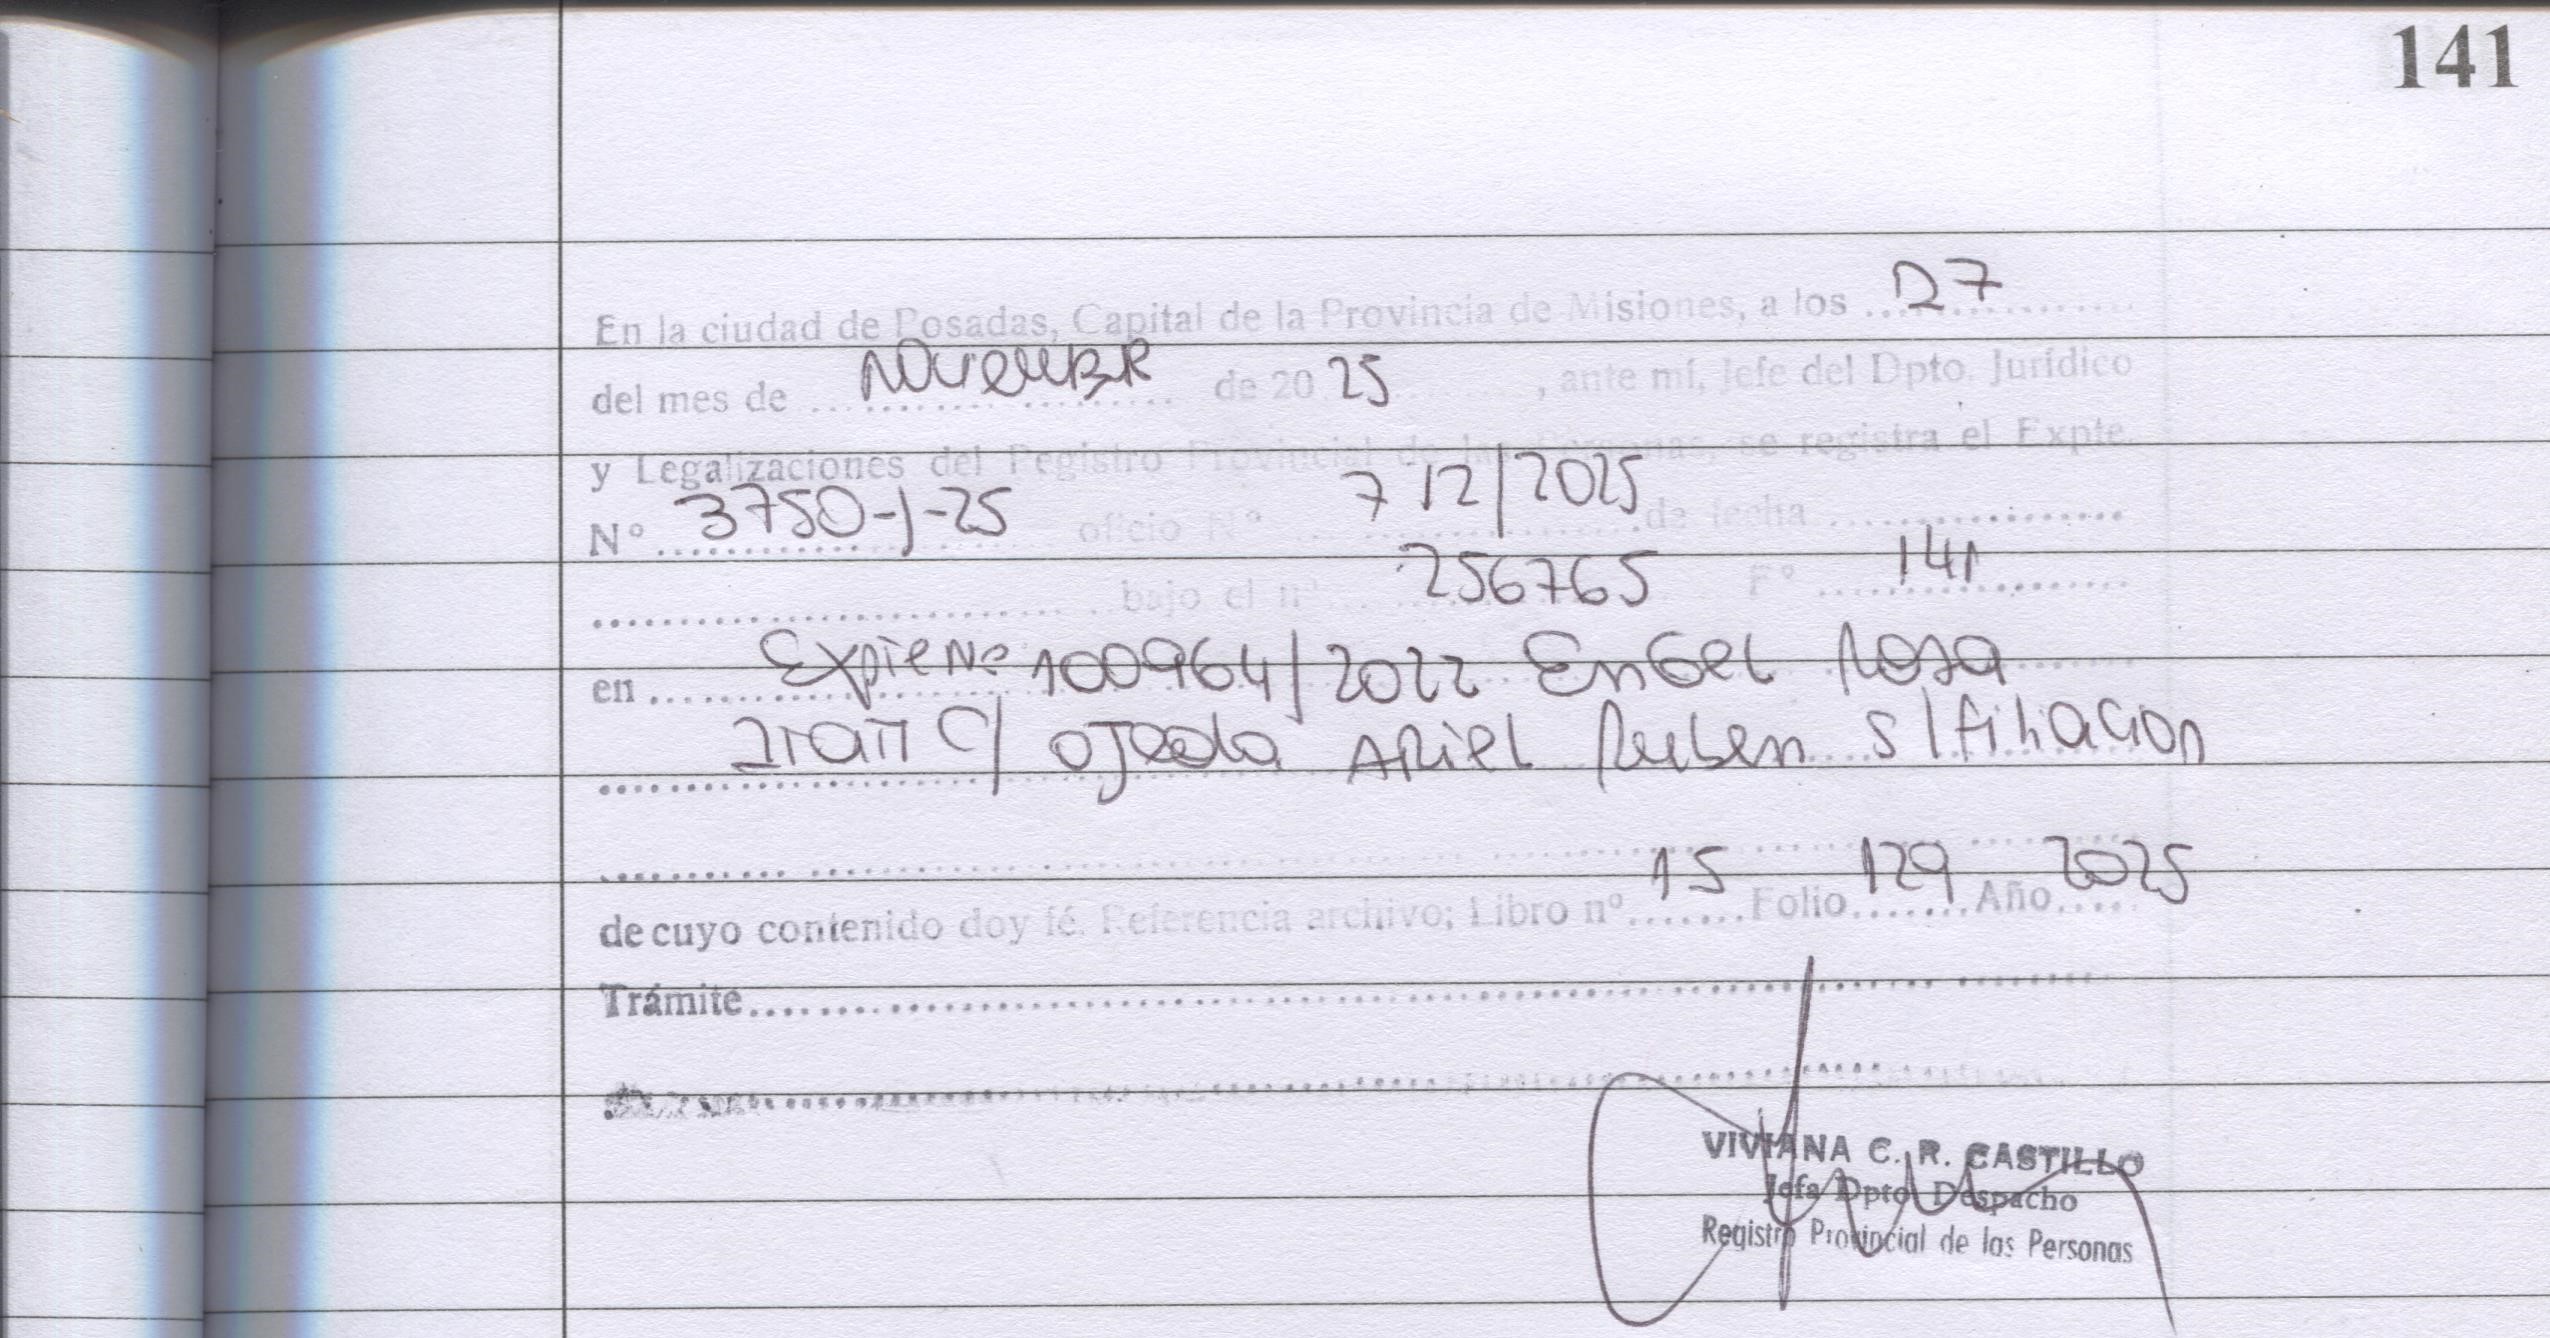 141
En la ciudad de Posadas, Capital de la Provincia de Misiones, a los 27
del mes de Noviembre de 20 25, ante mí, Jefe del Dpto. Jurídico
y Legalizaciones del Registro Provincial de las Personas, se registra el Expte.
Nº 3750-J-25 oficio Nº 712/2025 de fecha
bajo el nº 256765 Fº 141
en Expte Nº 100964/2022 Engel Rosa
Itati C/ Ojeda Ariel Ruben s/filiacion
de cuyo contenido doy fé. Referencia archivo; Libro nº 15 Folio 129 Año 2025
Trámite
VIVIANA C. R. CASTILLO
Jefa Dpto. Despacho
Registro Provincial de las Personas